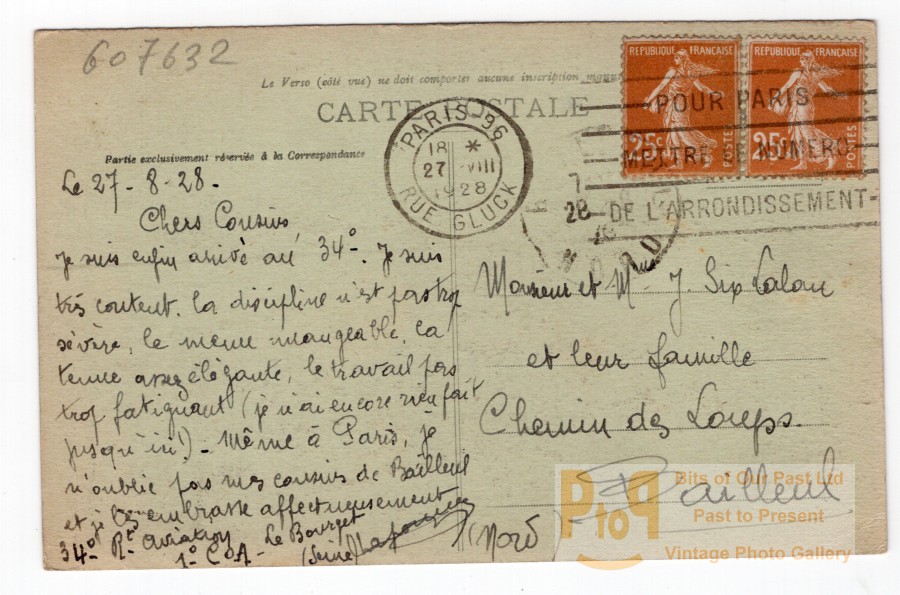 607632
Le Verso (côté vue) ne doit comporter aucune inscription manu
CARTE POSTALE
Partie exclusivement réservée à la Correspondance
PARIS-96
18 *
27 VIII
1928
RUE GLUCK
REPUBLIQUE FRANÇAISE
25c
POSTES
REPUBLIQUE FRANÇAISE
25c
POSTES
POUR PARIS
METTRE LE NUMERO
DE L'ARRONDISSEMENT
28
Le 27-8-28.
Chers Cousins,
Je suis enfin arrivé au 34e. Je suis
très content. la discipline n'est pas trop
sévère, le menu mangeable, la
tenue assez élégante, le travail pas
trop fatiguant (je n'ai encore rien fait
jusqu'ici!). Même à Paris, je
n'oublie pas mes cousins de Bailleul
et je les embrasse affectueusement
34e Rt Aviation
1e C.O.A. Le Bourget
(Seine)
Monsieur et Mme J. Six
et leur famille
Chemin des Loups.
Bailleul
(Nord)
PtoP
Bits of Our Past Ltd
Past to Present
Vintage Photo Gallery